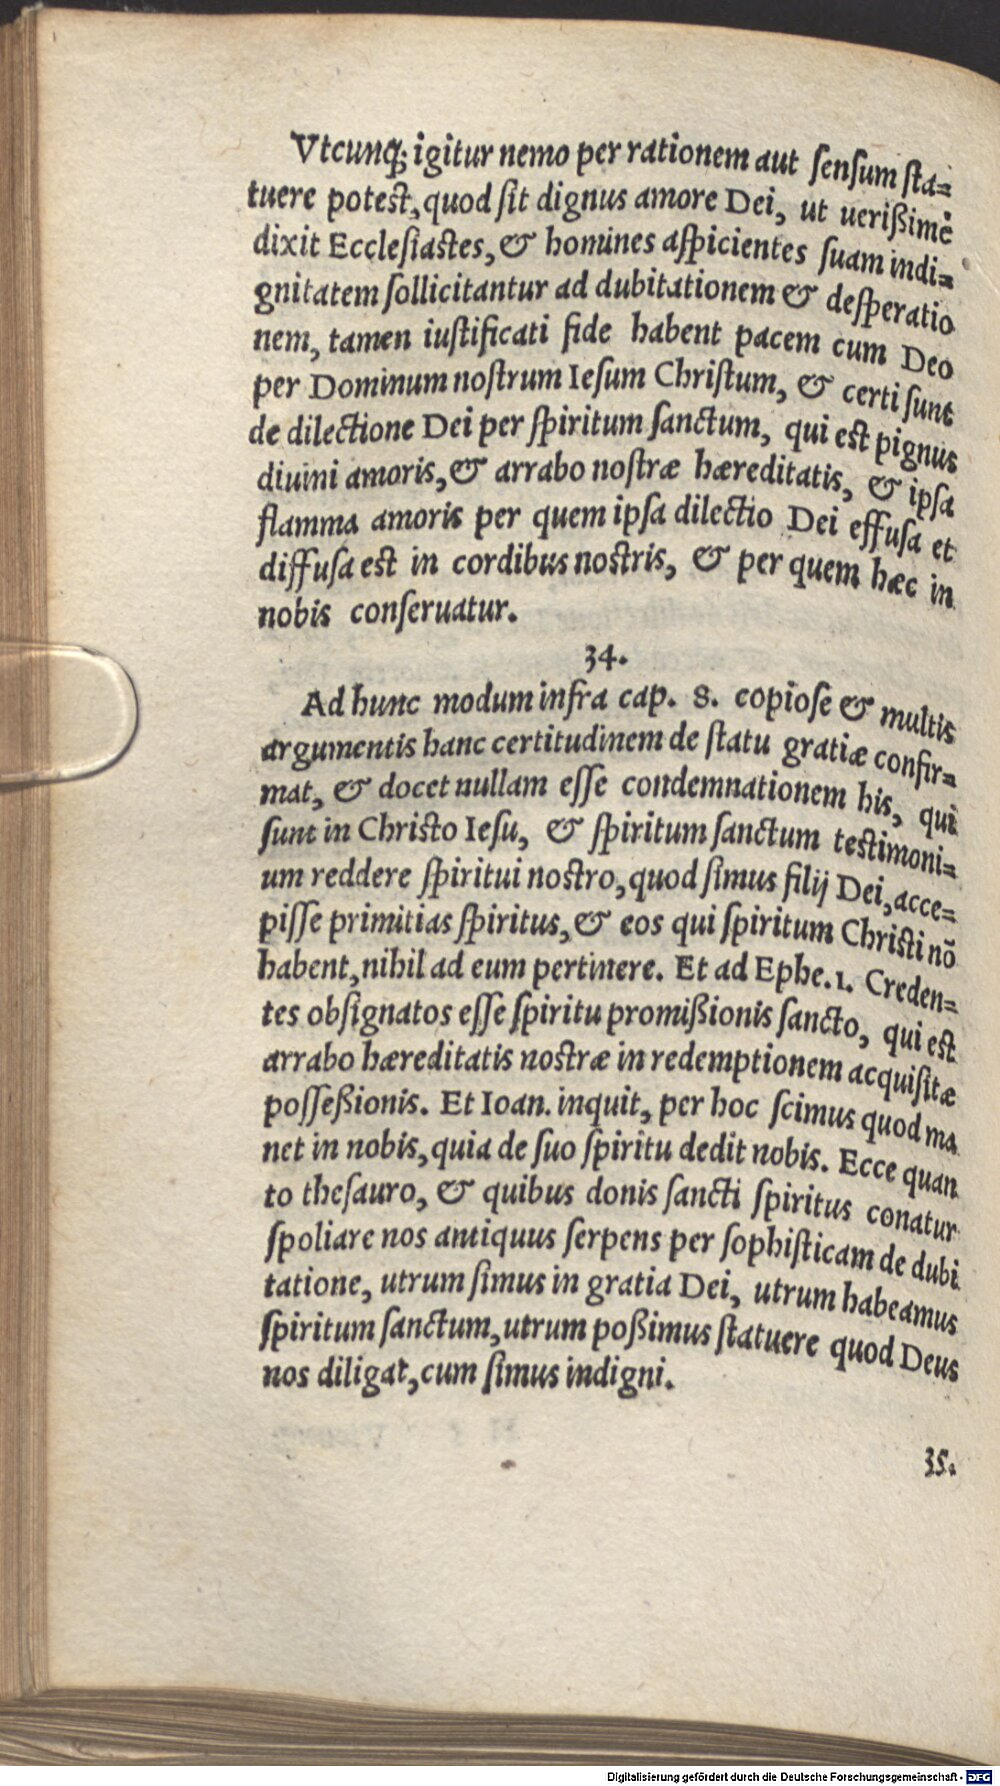 Vtcunq; igitur nemo per rationem aut ſenſum ſta=
tuere poteſt, quod ſit dignus amore Dei, ut uerißimè
dixit Eccleſiaſtes, & homines aſpicientes ſuam indi=
gnitatem ſollicitantur ad dubitationem & deſperatio
nem, tamen iuſtificati fide habent pacem cum Deo
per Dominum noſtrum Ieſum Chriſtum, & certi ſunt
de dilectione Dei per ſpiritum ſanctum, qui eſt pignus
diuini amoris, & arrabo noſtræ hæreditatis, & ipſa
flamma amoris per quem ipſa dilectio Dei effuſa et
diffuſa est in cordibus noſtris, & per quem hæc in
nobis conſeruatur.
34.
Ad hunc modum infra cap. 8. copioſe & multis
argumentis hanc certitudinem de ſtatu gratiæ confir=
mat, & docet nullam eſſe condemnationem his, qui
ſunt in Chriſto Ieſu, & ſpiritum ſanctum teſtimoni=
um reddere ſpiritui noſtro, quod ſimus filij Dei, acce=
piſſe primitias ſpiritus, & eos qui ſpiritum Chriſti nō
habent, nihil ad eum pertinere. Et ad Ephe. 1. Creden=
tes obſignatos eſſe ſpiritu promißionis ſancto, qui eſt
arrabo hæreditatis noſtræ in redemptionem acquiſitæ
poſſeßionis. Et Ioan. inquit, per hoc ſcimus quod ma
net in nobis, quia de ſuo ſpiritu dedit nobis. Ecce quan
to theſauro, & quibus donis ſancti ſpiritus conatur
ſpoliare nos antiquus ſerpens per ſophiſticam de dubi
tatione, utrum ſimus in gratia Dei, utrum habeamus
ſpiritum ſanctum, utrum poßimus ſtatuere quod Deus
nos diligat, cum ſimus indigni.
35.
Digitalisierung gefördert durch die Deutsche Forschungsgemeinschaft - DFG